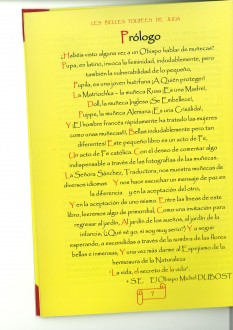 LES BELLES POUPÉES DE JULIA
Prólogo
¿Habéis visto alguna vez a un Obispo hablar de muñecas?
Pupa, en latino, invoca la feminidad, indudablemente, pero
también la vulnerabilidad de lo pequeño,
Pupila, es una joven huérfana ¡A Quién proteger!
La Matriochka – la muñeca Rusa ¡Es una Madre!,
Doll, la muñeca Inglesa ¡Se Embellece!,
Puppe, la muñeca Alemana ¡Es una Crisálida!,
Y ¡El hombre francés rápidamente ha tratado las mujeres
como unas muñecas!, Bellas indudablemente pero tan
diferentes! Este pequeño libro es un acto de Fe,
Un acto de Fe católica. Con el deseo de comentar algo
indispensable a través de las fotografías de las muñecas.
La Señora Sánchez, Traductora, nos muestra muñecas de
diversos idiomas Y nos hace escuchar un mensaje de paz en
la diferencia y en la aceptación del otro,
Y en la aceptación de uno mismo. Entre las líneas de este
libro, leeremos algo de primordial, Como una invitación para
regresar al jardín, Al jardín de los sueños, al jardín de la
infancia, ¿Qué sé yo, si soy muy serio? Y a seguir
esperando, a escondidas a través de la sombra de las flores
bellas e inmensas, Y una vez más darme al Espejismo de la
hermosura de la Naturaleza
"La vida, el secreto de la vida".
+ S.E. El Obispo Michel DUBOST
7